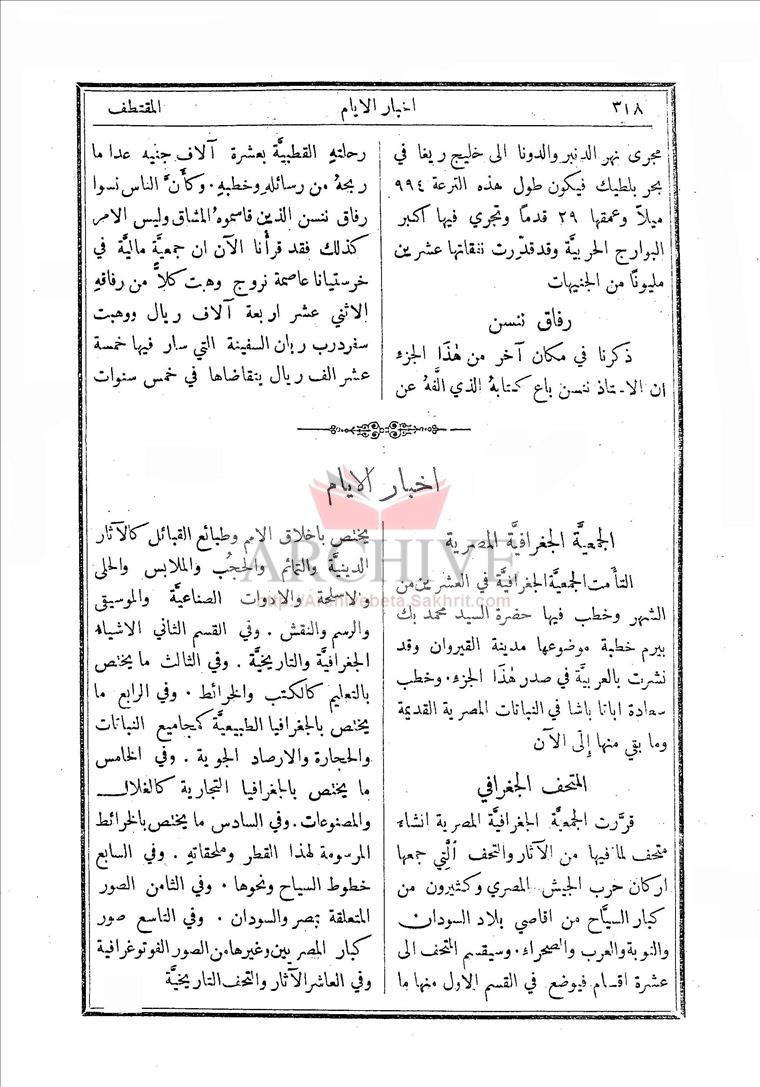 ٣١٨
اخبار الايام
المقتطف
مجرى نهر الدنبر والدونا الى خليج ريغا في
بحر بلطيك فيكون طول هذه الترعة ٩٩٤
ميلاً وعمقها ٢٩ قدماً وتجري فيها اكبر
البوارج الحربيَّة وقد قدّرت نفقاتها عشرين
مليوناً من الجنيهات
رفاق ننسن
ذكرنا في مكان آخر من هٰذَا الجزء
ان الاستاذ ننسن باع كتابهُ الذي الَّفهُ عن
رحلتهِ القطبيَّة بعشرة آلاف جنيه عدا ما
ربحهُ من رسائلهِ وخطبهِ . وكأَنَّ الناس نسوا
رفاق ننسن الذين قاسموهُ المشاق وليس الامر
كذلك فقد قرأْنا الآن ان جمعيَّة ماليَّة في
خرستيانا عاصمة نروج وهبت كلاًّ من رفاقهِ
الاثني عشر اربعة آلاف ريال ووهبت
سفردرب ربان السفينة التي سار فيها خمسة
عشر الف ريال يتقاضاها في خمس سنوات
اخبار الايام
الجمعيَّة الجغرافيَّة المصرية
التأَمت الجمعيَّة الجغرافيَّة في العشرين من
الشهر وخطب فيها حضرة السيد محمد بك
بيرم خطبة موضوعها مدينة القيروان وقد
نشرت بالعربيَّة في صدر هٰذَا الجزء . وخطب
سعادة اباتا باشا في النباتات المصرية القديمة
وما بقي منها إِلى الآن
المتحف الجغرافي
قرَّرت الجمعيَّة الجغرافيَّة المصرية انشاء
متحف لما فيها من الآثار والتحف التي جمعها
اركان حرب الجيش المصري وكثيرون من
كبار السيَّاح من اقاصي بلاد السودان
والنوبة والعرب والصحراء . وسيقسم المتحف الى
عشرة اقسام فيوضع في القسم الاول منها ما
يختص باخلاق الامم وطبائع القبائل كالآثار
الدينيَّة والتمائم والحجُب والملابس والحلى
والاسلحة والادوات الصناعيَّة والموسيقى
والرسم والنقش . وفي القسم الثاني الاشياء
الجغرافية والتاريخيَّة . وفي الثالث ما يختص
بالتعليم كالكتب والخرائط . وفي الرابع ما
يختص بالجغرافيا الطبيعيَّة كمجاميع النباتات
والحجارة والارصاد الجوية . وفي الخامس
ما يختص بالجغرافيا التجارية كالغلال
والمصنوعات . وفي السادس ما يختص بالخرائط
المرسومة لهذا القطر وملحقاتهِ . وفي السابع
خطوط السياح ونحوها . وفي الثامن الصور
المتعلقة بمصر والسودان . وفي التاسع صور
كبار المصريين وغيرها من الصور الفوتوغرافية
وفي العاشر الآثار والتحف التاريخيَّة
ARCHIVE
http://Archivebeta.Sakhrit.com